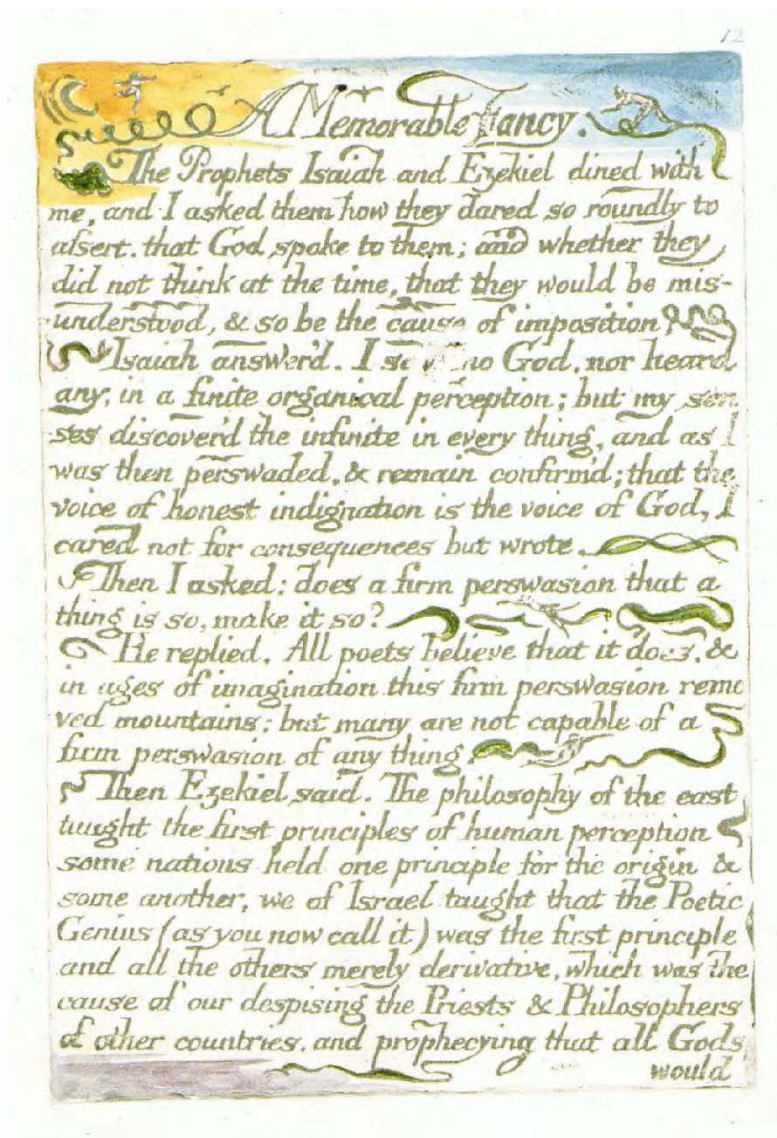 12
A Memorable Fancy.
The Prophets Isaiah and Ezekiel dined with
me, and I asked them how they dared so roundly to
assert. that God spake to them; and whether they
did not think at the time, that they would be mis-
understood, & so be the cause of imposition?
Isaiah answer'd. I saw no God, nor heard
any, in a finite organical perception; but my sen
ses discover'd the infinite in every thing, and as I
was then perswaded, & remain confirm'd; that the
voice of honest indignation is the voice of God, I
cared not for consequences but wrote.
Then I asked: does a firm perswasion that a
thing is so, make it so?
He replied. All poets believe that it does, &
in ages of imagination this firm perswasion remo
ved mountains; but many are not capable of a
firm perswasion of any thing.
Then Ezekiel said. The philosophy of the east
taught the first principles of human perception
some nations held one principle for the origin &
some another, we of Israel taught that the Poetic
Genius (as you now call it) was the first principle
and all the others merely derivative, which was the
cause of our despising the Priests & Philosophers
of other countries, and prophecying that all Gods
would